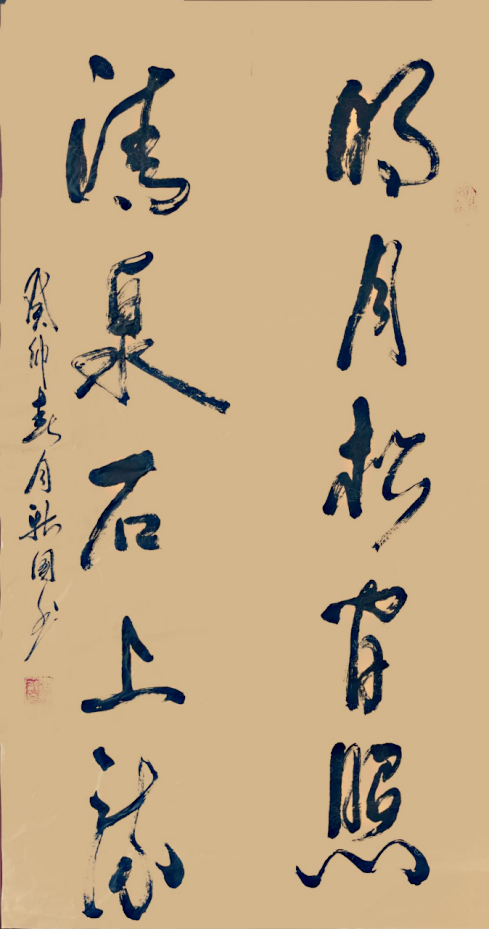 明月松间照
清泉石上流
癸卯春月